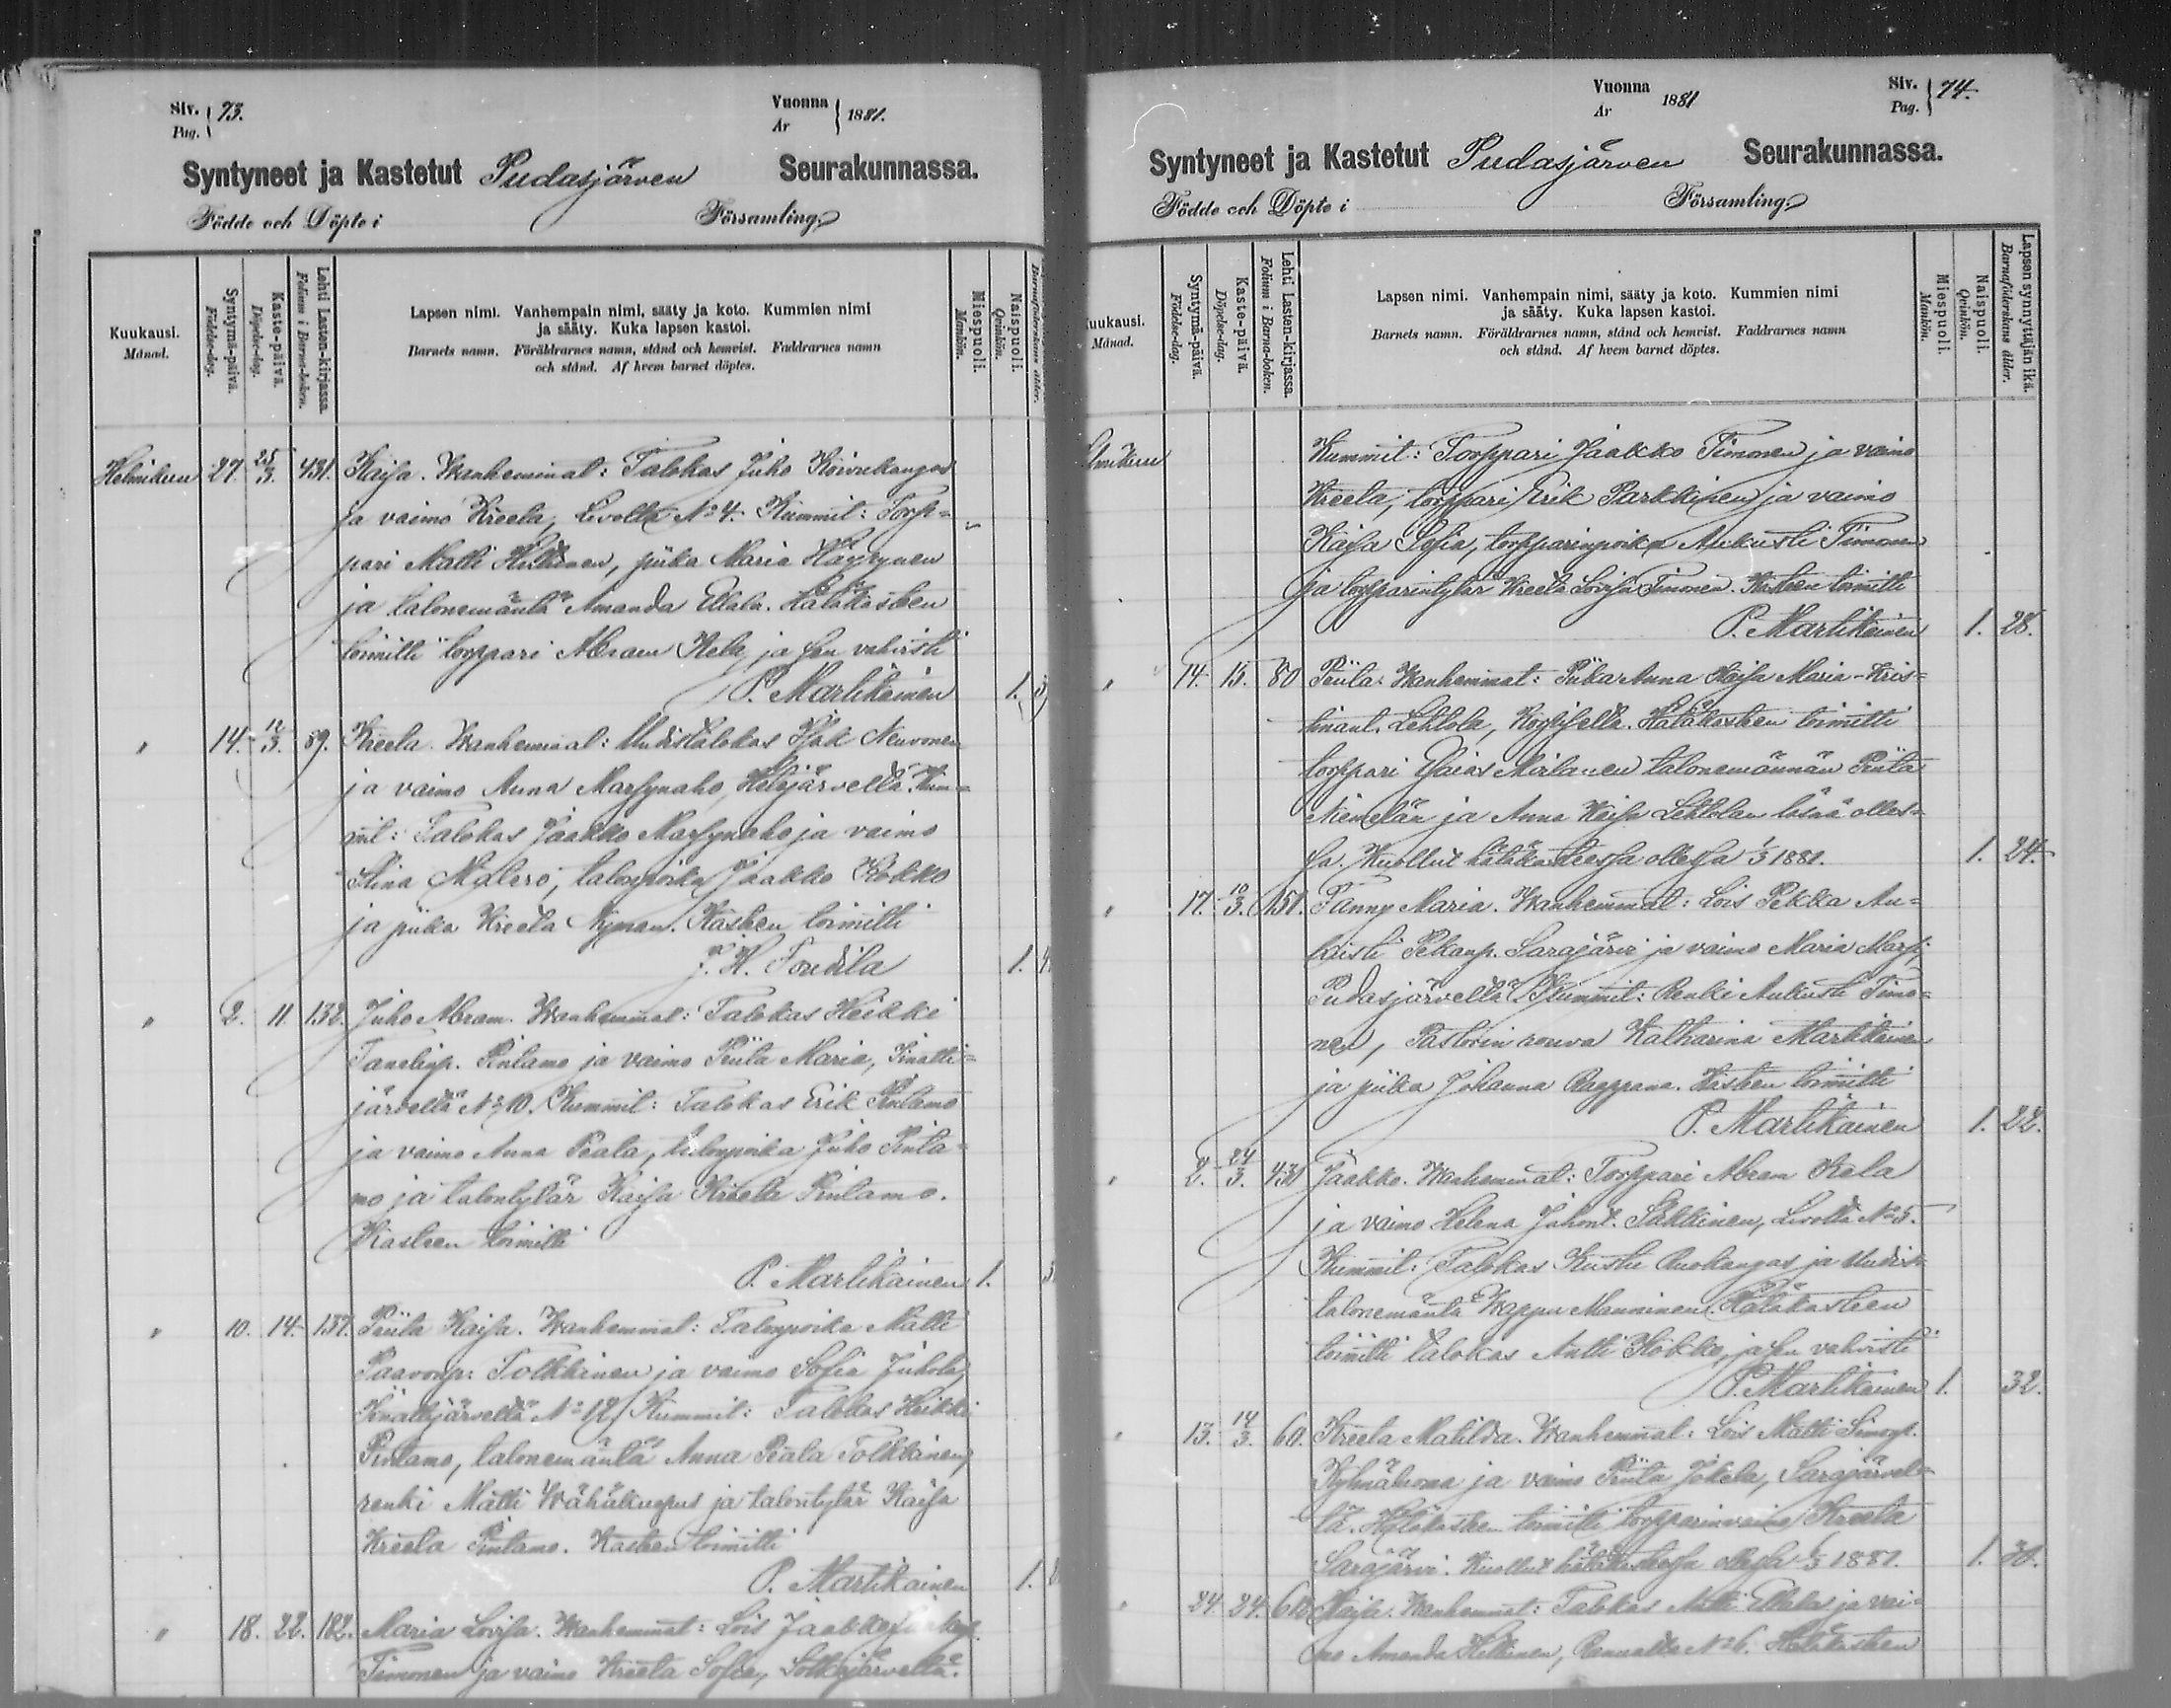 Siv. 73.
Pag.
Vuonna 1881.
År
Syntyneet ja Kastetut Pudasjärven Seurakunnassa.
Födde och Döpte i Församling
Kuukausi.
Månad.
Syntymä-päivä.
Födelse-dag.
Kaste-päivä.
Döpelse-dag.
Lehti Lasten-kirjassa.
Folium i Barna-boken.
Lapsen nimi. Vanhempain nimi, sääty ja koto. Kummien nimi
ja sääty. Kuka lapsen kastoi.
Barnets namn. Föräldrarnes namn, stånd och hemvist. Faddrarnes namn
och stånd. Af hvem barnet döptes.
Miespuoli.
Mankön.
Naispuoli.
Qvinkön.
Barnaföderskans ålder.
Helmikuu 27. 25/3. 431. Kaisa. Wanhemmat: Talokas Juho Koivukangas
ja vaimo Kreeta, Livolla No 4. Kummit: Torp-
pari Matti Hiltunen, piika Maria Häyrynen
ja talonemäntä Amanda Ellala. Hätäkasteen
toimitti torppari Abram Kela ja sen vahvisti
P. Martikainen 1.
" 14. 12/3. 59. Kreeta. Wanhemmat: Uudistalokas Isak Neuvonen
ja vaimo Anna Marsynaho, Hetejärvellä. Kum-
mit: Talokas Jaakko Marsynaho ja vaimo
Stina Malero, talonpoika Jaakko Kokko
ja piika Kreeta Nyman. Kasteen toimitti
H. Tondila 1.
" 2. 11. 132. Juho Abram. Wanhemmat: Talokas Heikki
Tanelinp. Pintamo ja vaimo Piita Maria, Iinatti-
järvellä No 10. Kummit: Talokas Erik Pintamo
ja vaimo Anna Peala, talonpoika Juho Pinta-
mo ja talontytär Kaisa Kreeta Pintamo.
Kasteen toimitti
P. Martikainen 1.
" 10. 14. 137. Piita Kaisa. Wanhemmat: Talonpoika Matti
Paavonp. Tolkkinen ja vaimo Sofia Juhola,
Iinattijärvellä No 12. Kummit: Talokas Heikki
Pintamo, talonemäntä Anna Peala Tolkkinen,
renki Matti Wähäkuopus ja talontytär Kaisa
Kreeta Pintamo. Kasteen toimitti
P. Martikainen 1.
" 18. 22. 182. Maria Lovisa. Wanhemmat: Lois Jaakko
Timonen ja vaimo Kreeta Sofia, Sotkajärvellä.
Vuonna 1881
År
Siv. 74.
Pag.
Syntyneet ja Kastetut Pudasjärven Seurakunnassa.
Födde och Döpte i Församling
Kuukausi.
Månad.
Syntymä-päivä.
Födelse-dag.
Kaste-päivä.
Döpelse-dag.
Lehti Lasten-kirjassa.
Folium i Barna-boken.
Lapsen nimi. Vanhempain nimi, sääty ja koto. Kummien nimi
ja sääty. Kuka lapsen kastoi.
Barnets namn. Föräldrarnes namn, stånd och hemvist. Faddrarnes namn
och stånd. Af hvem barnet döptes.
Miespuoli.
Mankön.
Naispuoli.
Qvinkön.
Lapsen synnyttäjän ikä.
Barnaföderskans ålder.
Kummit: Torppari Jaakko Timonen ja vaimo
Kreeta, torppari Erik Parkkinen ja vaimo
Kaisa Sofia, torpparinpoika Aukusti Timonen
ja torpparintytär Kreeta Lovisa Timonen. Kasteen toimitti
P. Martikainen 1. 28.
" 14. 15. 80 Piita. Wanhemmat: Piika Anna Kaisa Maria Kris-
tinant. Lehtola, Korpisella. Hätäkasteen toimitti
torppari Esaias Moilanen talonemännän Piita
Niemelän ja Anna Kaisa Lehtolan läsnä olles-
sa. Kuollut hätäkasteessa ollessa 1/3 1881. 1. 24.
" 17. 10/3. 151. Fanny Maria. Wanhemmat: Lois Pekka Au-
kusti Pekanp. Sarajärvi ja vaimo Maria
Pudasjärvellä. Kummit: Renki Aukusti Timo-
nen, Pastorin rouva Katharina Martikainen
ja piika Johanna Raappana. Kasteen toimitti
P. Martikainen 1. 22.
" 2. 24/3. 431 Jaakko. Wanhemmat: Torppari Abram Kela
ja vaimo Helena Juhont. Säkkinen, Livolla No 5.
Kummit: Talokas Kusti Ruokangas ja Uudis-
talonemäntä Wappu Manninen. Hätäkasteen
toimitti talokas Antti Kokko, ja sen vahvisti
P. Martikainen 1. 32.
" 13. 14/3. 60. Kreeta Matilda. Wanhemmat: Lois Matti Simonp.
Kylmäluoma ja vaimo Piita Jokela, Sarajärvel-
lä. Hätäkasteen toimitti torpparinvaimo Kreeta
Sarajärvi. Kuollut hätäkasteessa ollessa 1/3 1881. 1. 30.
" 24 24. Kaisa. Wanhemmat: Talokas Matti Ellala ja vai-
mo Amanda Hiltunen, Rannalla No 6. Hätäkasteen